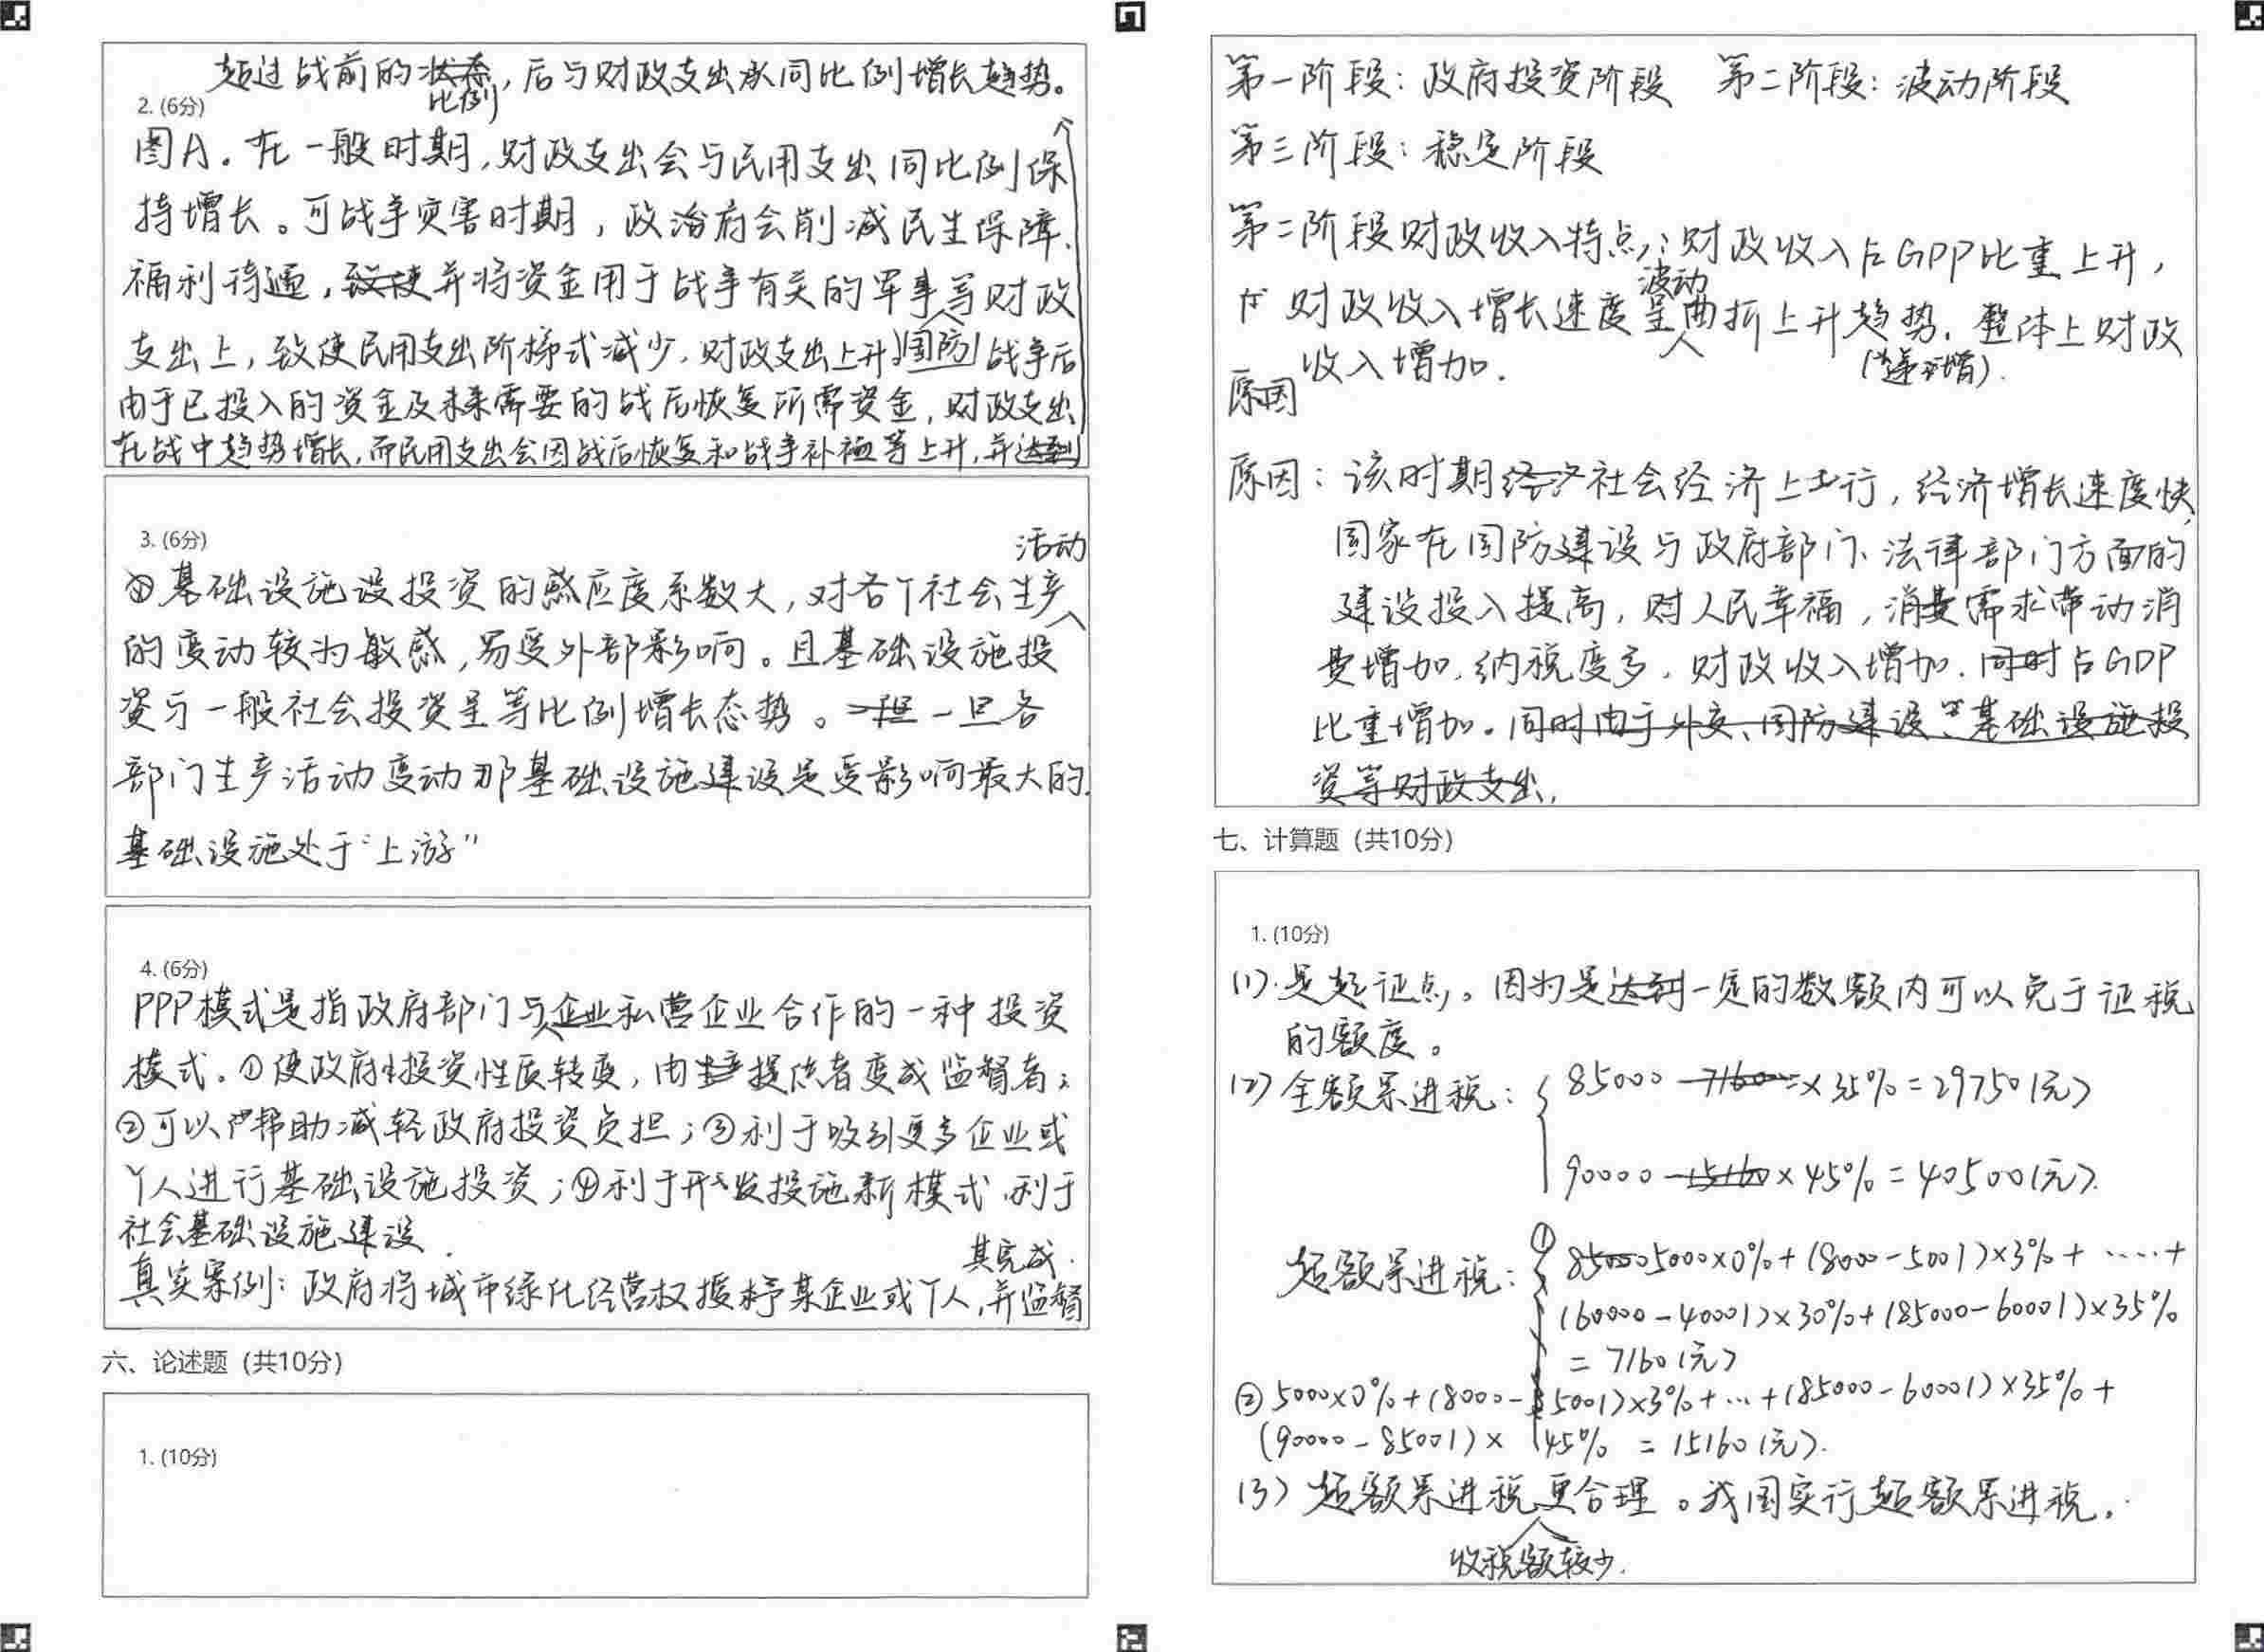 超过战前的状态比例，后与财政支出承同比例增长趋势。
2. (6分)
图A。在一般时期，财政支出会与民用支出同比例保
持增长。可战争灾害时期，政治府会削减民生保障、
福利待遇，致使并将资金用于战争有关的军事等财政
支出上，致使民用支出阶梯式减少，财政支出上升。国防 战争后
由于已投入的资金及未来需要的战后恢复所需资金，财政支出
在战中趋势增长，而民用支出会因战后恢复和战争补恤等上升，并达到
3. (6分)
活动
基础设施设投资的感应度系数大，对各个社会生产
的变动较为敏感，易受外部影响。且基础设施投
资与一般社会投资呈等比例增长态势。一旦各
部门生产活动变动那基础设施建设是受影响最大的.
基础设施处于“上游”
4. (6分)
PPP模式是指政府部门与企业私营企业合作的一种投资
模式。①使政府投资性质转变，由生产提供者变成监督者；
②可以帮助减轻政府投资负担；③利于吸引更多企业或
个人进行基础设施投资；④利于开发投施新模式，利于
社会基础设施建设.
其完成.
真实案例：政府将城市绿化经营权授予某企业或个人，并监督
六、论述题（共10分）
1. (10分)
第一阶段：政府投资阶段 第二阶段：波动阶段
第三阶段：稳定阶段
第二阶段财政收入特点：财政收入占GPP比重上升，
波动
财政收入增长速度呈曲折上升趋势. 整体上财政
收入增加.
原因
原因：该时期经济社会经济上行，经济增长速度快，
国家在国防建设与政府部门、法律部门方面的
建设投入提高，财人民幸福，消费需求带动消
费增加，纳税度多，财政收入增加.同时占GDP
比重增加。同时由于外交、国防建设、基础设施投
资等财政支出，
七、计算题（共10分）
1. (10分)
(1). 是起征点。因为是达到一定的数额内可以免于征税
的额度。
(2) 全额累进税：85000-7160=×35%=29750(元)
90000-15160×45%=40500(元).
超额累进税：① 850005000×0%+(8000-5001)×3%+……+
(60000-40001)×30%+(85000-60001)×35%
=7160(元)
② 5000×0%+(8000-5001)×3%+…+(85000-60001)×35%+
(90000-85001)×45%=15160(元).
(3) 超额累进税更合理。我国实行超额累进税.
收税额较少.